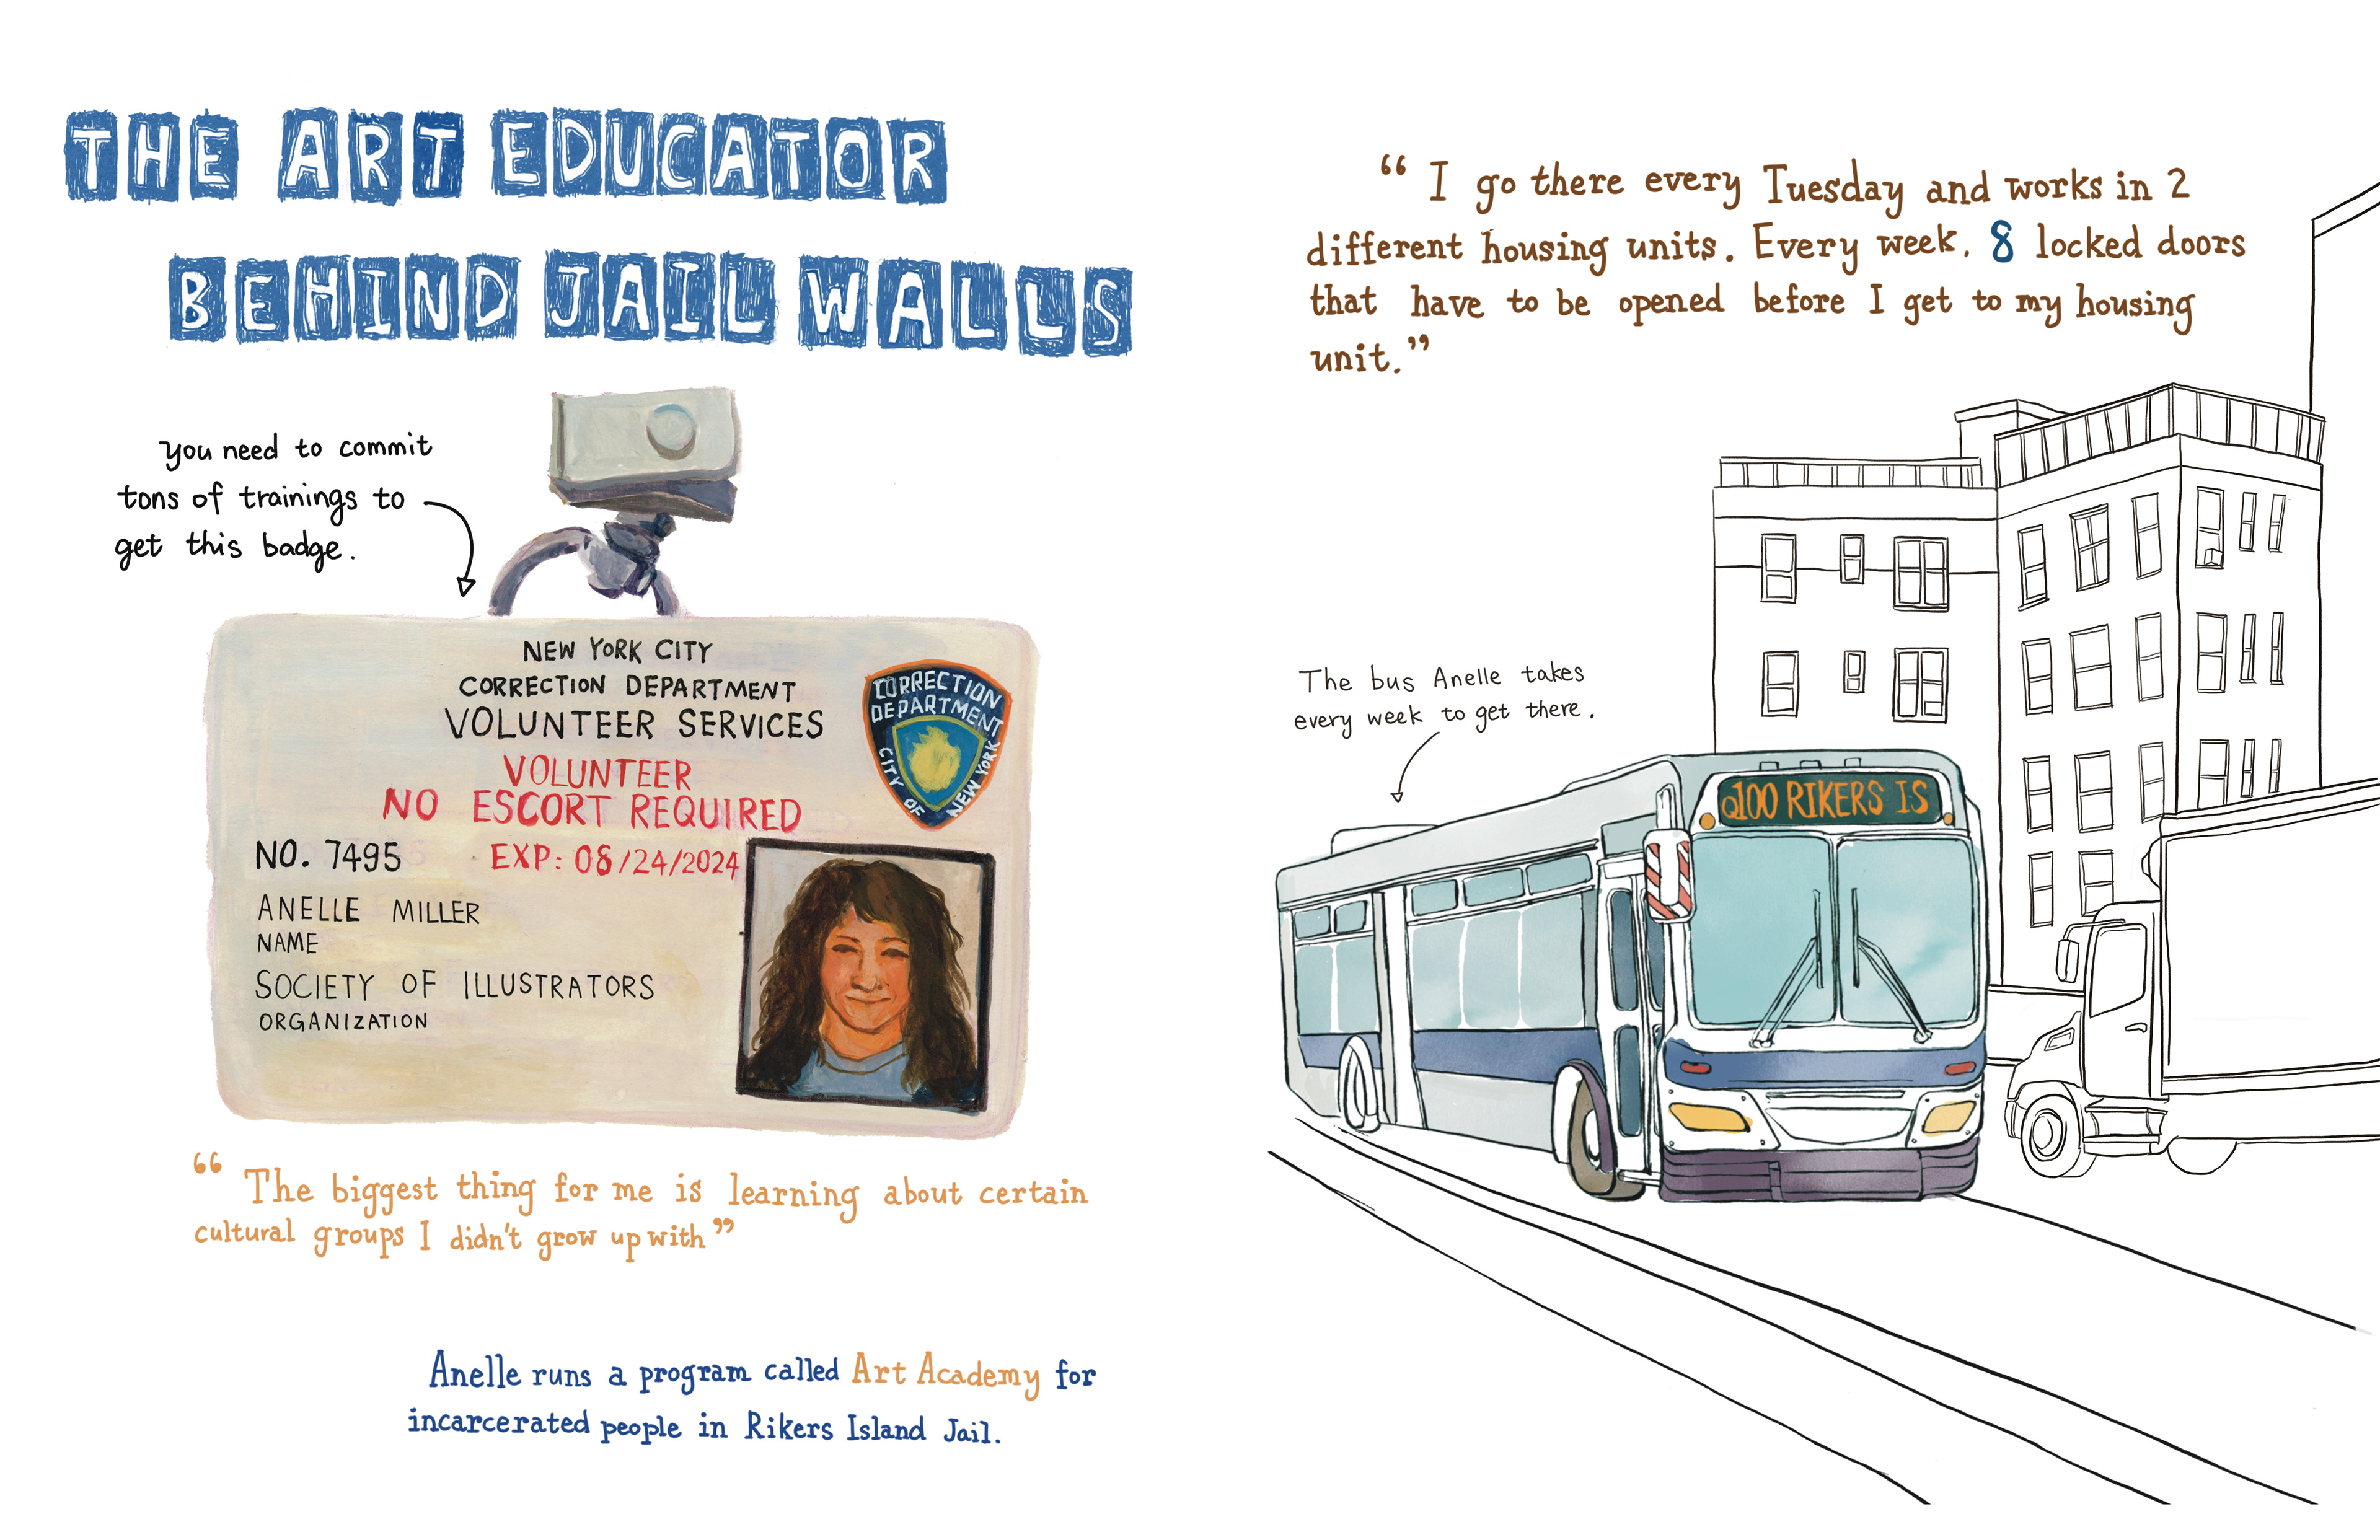 THE ART EDUCATOR
BEHIND JAIL WALLS
you need to commit
tons of trainings to
get this badge.
NEW YORK CITY
CORRECTION DEPARTMENT
VOLUNTEER SERVICES
VOLUNTEER
NO ESCORT REQUIRED
NO. 7495 EXP: 08/24/2024
ANELLE MILLER
NAME
SOCIETY OF ILLUSTRATORS
ORGANIZATION
CORRECTION
DEPARTMENT
CITY OF NEW YORK
“ The biggest thing for me is learning about certain
cultural groups I didn't grow up with ”
Anelle runs a program called Art Academy for
incarcerated people in Rikers Island Jail.
“ I go there every Tuesday and works in 2
different housing units. Every week, 8 locked doors
that have to be opened before I get to my housing
unit.”
The bus Anelle takes
every week to get there.
Q100 RIKERS IS